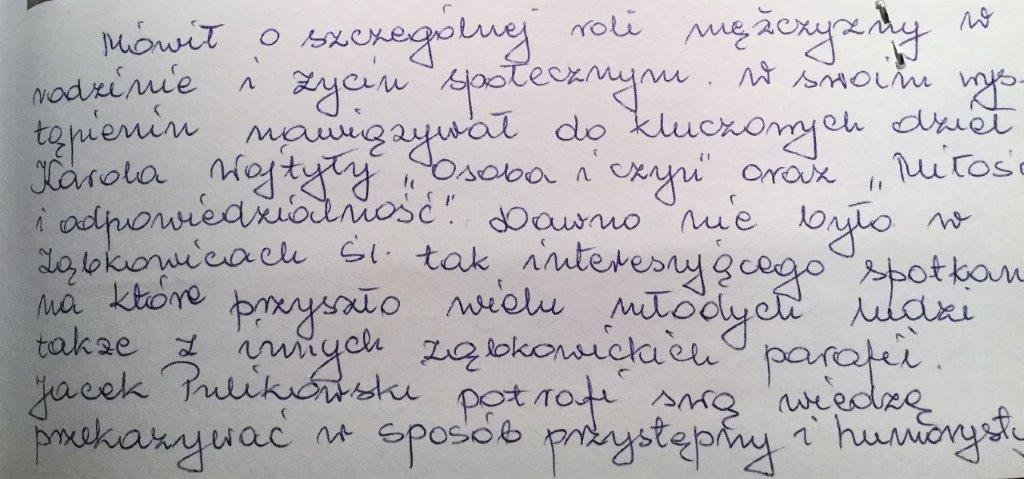 Mówił o szczególnej roli mężczyzny w
rodzinie i życiu społecznym. W swoim wys-
tąpieniu nawiązywał do kluczowych dzieł
Karola Wojtyły „Osoba i czyn" oraz „Miłość
i odpowiedzialność". Dawno nie było w
Ząbkowicach Śl. tak interesującego spotkan
na które przyszło wielu młodych ludzi
także z innych ząbkowickich parafii.
Jacek Pulikowski potrafi swą wiedzą
przekazywać w sposób przystępny i humorysty